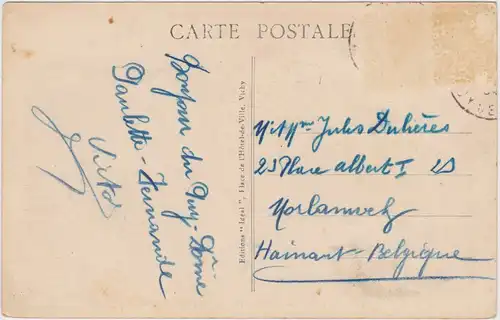 CARTE POSTALE
Bonjour du Puy-Dôme
Paulette - Fernande
Victor
Editions "Idéal", 1 Place de l'Hôtel-de-Ville, Vichy
Jules
23 Place albert I
Morlanwelz
Hainaut - Belgique